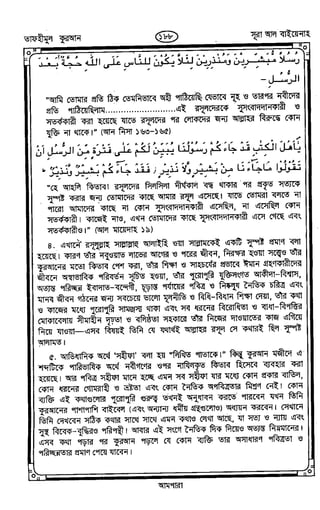 তাফহীমুল কুরআন
১৮৮
সূরা আল বাইয়েনাহ
رُسُلًا مُّبَشِّرِيْنَ وَمُنْذِرِيْنَ لِئَلَّا يَكُوْنَ لِلنَّاسِ عَلَى اللّٰهِ حُجَّةٌ بَعْدَ
الرُّسُلِ -
"আমি তোমার প্রতি ঠিক তেমনিভাবে অহী পাঠিয়েছি যেভাবে নূহ ও তারপর নবীদের
প্রতি পাঠিয়েছিলাম ..................এই রসূলদেরকে সুসংবাদদানকারী ও
সতর্ককারী করা হয়েছে যাতে রসূলদের পর লোকদের জন্য আল্লাহর বিরুদ্ধে কোন
যুক্তি না থাকে।" (আন নিসা ১৬৩-১৬৫)
يٰاَهْلَ الْكِتٰبِ قَدْ جَاءَكُمْ رَسُوْلُنَا يُبَيِّنُ لَكُمْ عَلٰى فَتْرَةٍ مِّنَ الرُّسُلِ اَنْ
تَقُوْلُوْا مَاجَاءَنَا مِنْ بَشِيْرٍ وَّلَا نَذِيْرٍ ز فَقَدْ جَاءَكُمْ بَشِيْرٌ وَّنَذِيْرٌ ط
"হে আহলি কিতাব! রসূলদের সিলসিলা দীর্ঘকাল বন্ধ থাকার পর প্রকৃত সত্যকে
সুস্পষ্ট করার জন্য তোমাদের কাছে আমার রসূল এসেছে। যাতে তোমরা বলতে না
পারো আমাদের কাছে না কোন সুসংবাদদানকারী এসেছিল, না এসেছিল কোন
সতর্ককারী। কাজেই নাও, এখন তোমাদের কাছে সুসংবাদদানকারী এসে গেছে এবং
সতর্ককারীও।" (আল মায়েদাহ ১৯)
৪. এখানে রসূলুল্লাহ সাল্লাল্লাহু আলাইহি ওয়া সাল্লামকেই একটি সুস্পষ্ট প্রমাণ বলা
হয়েছে। কারণ তাঁর নবুওয়াত লাভের আগের ও পরের জীবন, নিরক্ষর হওয়া সত্ত্বেও তাঁর
কুরআনের মতো কিতাব পেশ করা, তাঁর শিক্ষা ও সাহচর্যের প্রভাবে ঈমান গ্রহণকারীদের
জীবনে অস্বাভাবিক পরিবর্তন সূচিত হওয়া, তাঁর পুরোপুরি যুক্তিসংগত আকীদা-বিশ্বাস,
অত্যন্ত পরিচ্ছন্ন ইবাদাত-বন্দেগী, চূড়ান্ত পর্যায়ের পবিত্র ও নিষ্কলুষ নৈতিক চরিত্র এবং
মানব জীবন গঠনের জন্য সবচেয়ে ভালো মূলনীতি ও বিধি-বিধান শিক্ষা দেয়া, তাঁর কথা
ও কাজের মধ্যে পুরোপুরি সামঞ্জস্য থাকা এবং সব ধরনের বিরোধিতা ও বাধা-বিপত্তির
মোকাবেলায় সীমাহীন দৃঢ়তা ও বলিষ্ঠতা সহকারে তাঁর নিজের দাওয়াতের কাজ এগিয়ে
নিয়ে যাওয়া—এসব বিষয়ই তিনি যে যথার্থই আল্লাহর রসূল সে কথারই ছিল সুস্পষ্ট
আলামত।
৫. আভিধানিক অর্থে 'সহীফা' বলা হয় "লিখিত পাতাকে।" কিন্তু কুরআন মজীদে এ
শব্দটিকে পারিভাষিক অর্থে নবীগণের ওপর নাযিলকৃত কিতাব হিসেবে ব্যবহার করা
হয়েছে। আর পবিত্র সহীফা মানে হচ্ছে এমন সব সহীফা যার মধ্যে কোন প্রকার বাতিল,
কোন ধরনের গোমরাহী ও ভ্রষ্টতা এবং কোন নৈতিক অপবিত্রতার মিশ্রণ নেই। কোন
ব্যক্তি এই কথাগুলোর পুরোপুরি গুরুত্ব তখনই অনুধাবন করতে পারবেন যখন তিনি
কুরআনের পাশাপাশি বাইবেল (এবং অন্যান্য ধর্মীয় গ্রন্থগুলোও) অধ্যয়ন করবেন। সেখানে
তিনি দেখবেন সঠিক কথার সাথে সাথে এমন কথাও লেখা আছে, যা সত্য ও ন্যায় এবং
সুস্থ বিবেক-বুদ্ধিরও পরিপন্থী। আবার এই সংগে নৈতিক দিক দিয়েও অত্যন্ত নিম্নমানের।
এসব কথা পড়ার পর কুরআন পড়লে যে কোন ব্যক্তি তার অসাধারণ পবিত্রতা ও
পরিচ্ছন্নতার প্রমাণ পেয়ে যাবেন।
আমপারা